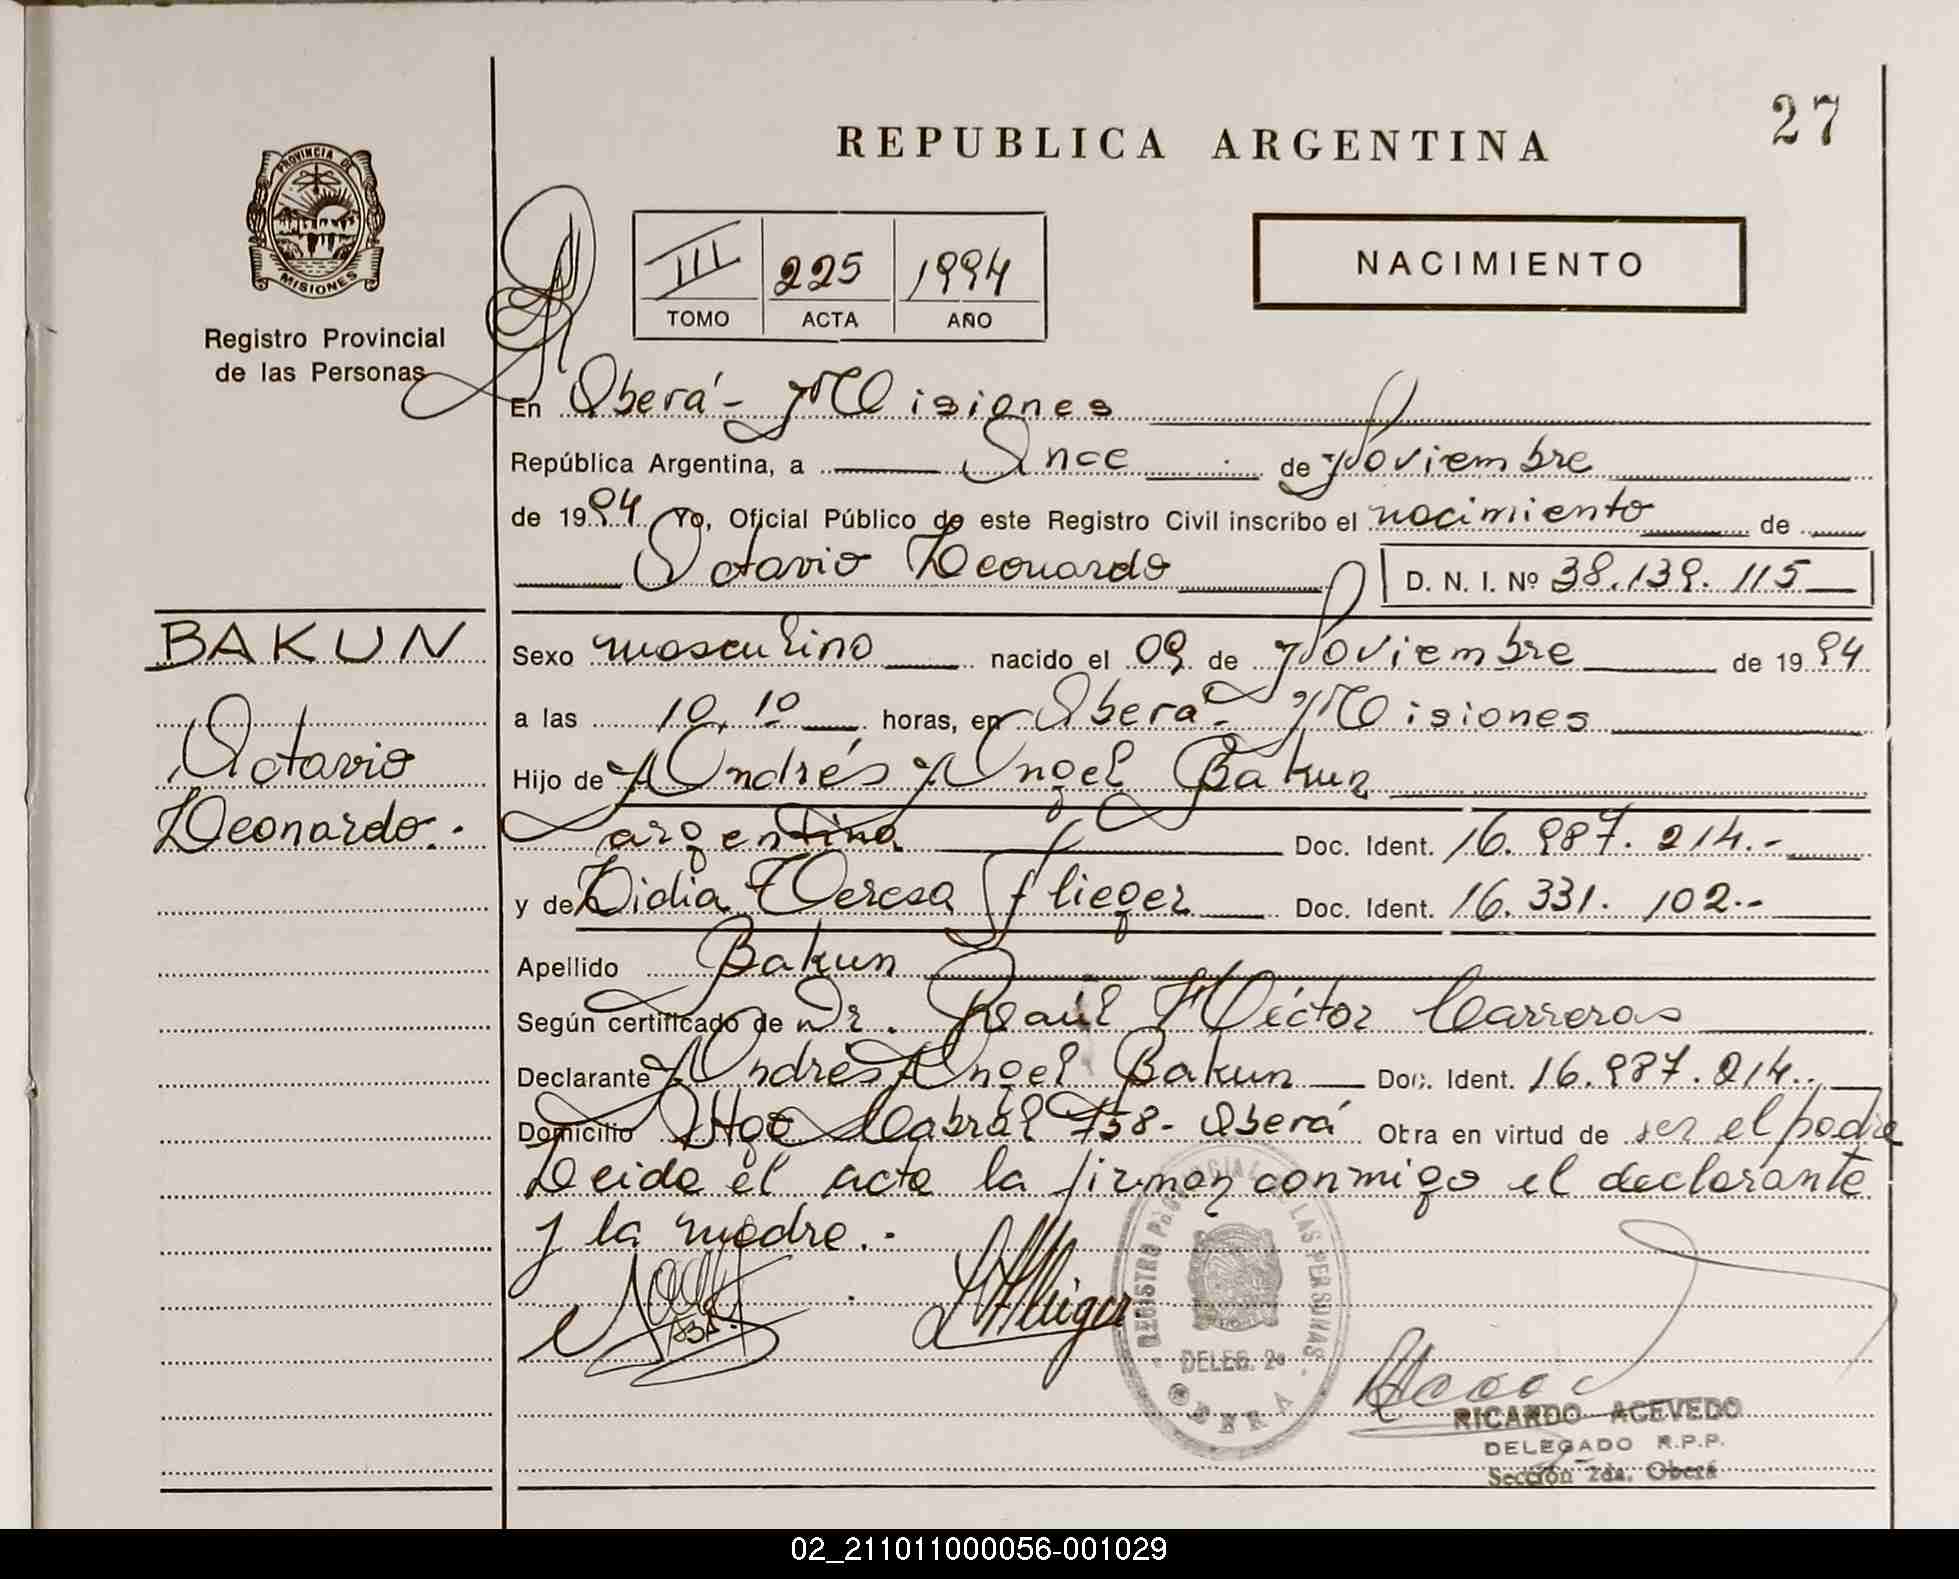 27
REPUBLICA ARGENTINA
PROVINCIA DE
MISIONES
Registro Provincial
de las Personas
III 225 1994
TOMO ACTA AÑO
NACIMIENTO
En Oberá - Misiones
República Argentina, a Once de Noviembre
de 1994 Yo, Oficial Público de este Registro Civil inscribo el nacimiento de
Octavio Leonardo D. N. I. Nº 38.139.115
BAKUN
Octavio
Leonardo.-
Sexo masculino nacido el 09 de Noviembre de 1994
a las 10,10 horas, en Oberá - Misiones
Hijo de Andrés Angel Bakun
argentino Doc. Ident. 16.987.214.-
y de Lidia Teresa Flieger Doc. Ident. 16.331.102.-
Apellido Bakun
Según certificado de Dr. Raúl Héctor Carreras
Declarante Andrés Angel Bakun Doc. Ident. 16.987.214.-
Domicilio Stgo Cabral 758 - Oberá Obra en virtud de ser el padre
Leida el acta la firman conmigo el declarante
y la madre.-
REGISTRO PROVINCIAL DE LAS PERSONAS
DELEG. 2ª
OBERA
RICARDO ACEVEDO
DELEGADO R.P.P.
Sección 2da. Oberá
02_211011000056-001029